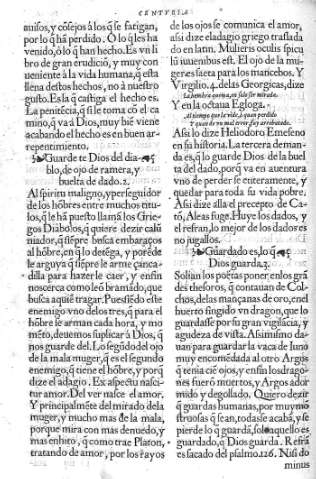 CENTVRIA
uisos, y cósejos à los q̃ se fatigan,
por lo q̃ há perdido. O lo q̃ les ha
venido, ò lo q̃ han hecho. Es vn li
bro de gran erudició, y muy con
ueniente à la vida humana, q̃ està
llena destos hechos, no à nuestro
gusto. Es la q̃ castiga el hecho es.
La penitécia, q̃ si se toma có el ca
mino, q̃ va à Dios, muy bié viene
acabando el hecho es en buen ar-
repentimiento.
Guarde te Dios del dia-
blo, de ojo de ramera, y
buelta de dado. 2.
Al spiritu maligno, y perseguidor
de los hóbres entre muchos titu-
los, q̃ le há puesto llamá los Grie-
gos Diabolos, q̃ quiere dezir calú
niador, q̃ siépre busca embaraços
al hóbre, en q̃ lo detéga, y poréde
le arguya q̃ siépre le arme çanca-
dilla para hazer le caer, y enfin
no scerca como leó bramádo, que
busca aquié tragar. Pues siédo este
enemigo vno delos tres, q̃ para el
hóbre se arman cada hora, y mo
méto, deuemos suplicar à Dios, q̃
nos guarde del. Lo següdo del ojo
de la mala muger, q̃ es el segundo
enemigo, q̃ tiene el hóbre, y porq̃
dize el adagio. Ex aspectu nasci-
tur amor. Del ver nasce el amor.
Y principalméte del mirado dela
muger, y mucho mas de la mala,
porque mira con mas denuedo, y
mas enhito, q̃ como trae Platon,
tratando de amor, por los rayos
de los ojos se comunica el amor,
assi dize eladagio griego traslada
do en latin. Mulieris oculis spicu
lú iuuenibus est. El ojo de la mu-
ger es saeta para los mácebos. Y
Virgilio. 4. delas Georgicas, dize
La hembra quema, en solo ser mirada.
Y en la octaua Egloga.
Al tiempo que la vide, à quan perdido
Y quan de vn mal error fuy arrebatado.
Assi lo dize Heliodoro Emeseno
en su historia. La tercera deman-
da es, q̃ lo guarde Dios de la buel
ta del dado, porq̃ va en auentura
vno de perder se enteramente, y
quedar para toda su vida pobre.
Assi dize alla el precepto de Ca-
tó, Aleas fuge. Huye los dados, y
el refran, lo mejor de los dados es
no jugallos.
Guardado es, lo q̃
Dios guarda. 3.
Solian los poëtas poner, enlos grã
des thesoros, q̃ contauan de Col-
chos, de las mançanas de oro, enel
huerto fingido vn dragon, que lo
guardasse por su gran vigilácia, y
agudeza de vista. Assimismo da-
uan para guardar la vaca de Iuno
muy encomédada al otro Argus
q̃ tenia cié ojos, y enfin los drago-
nes fueró muertos, y Argos ador
mido y degollado. Quiero dezir
q̃ guardas humanas, por muy mó
struosas q̃ sean, todas se acabá, y se
pierde lo q̃ guardã, solo aquello es
guardado, q̃ Dios guarda. Refrã
es sacado del psalmo. 126. Nisi do
minus